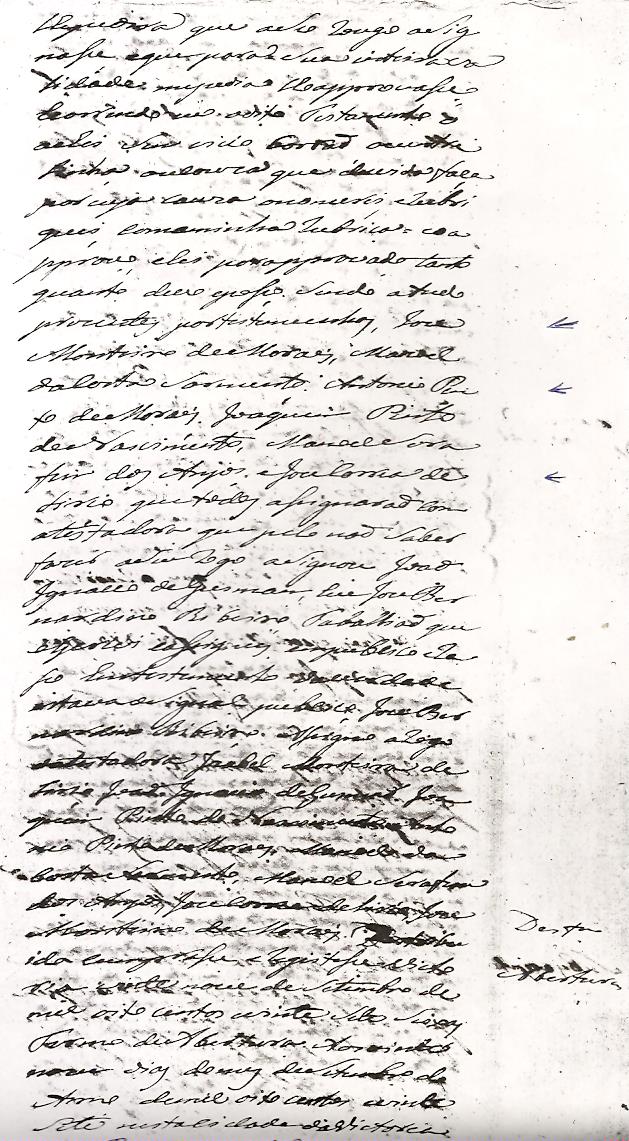 que aseo rogo asig
nase e que para Sua inteira va
lidade me pedia lle approvase
correndo o dito Testamento e
achei sem vicio borrão entreli
linha ou couza que duvida faça
por cuja cauza o numerei e rubri
quei com a minha rubrica = e o a
pprovei e hei por approvado tanto
quanto devo e posso Sendo a tudo
prezentes por testemunhas, Joze
Monteiro de Moraes, Manoel
da Costa Sarmento Antonio Pin
to de Moraes, Joaquim Pinto
do Nascimento, Manoel Sera
fim dos Anjos, e Joze Correa de
Lirio que todos asignarão com
a testadora que pelo não saber
fazer a seu rogo asignou João
Ignacio de Gusmão, Eu Joze Ber
nardino Ribeiro Tabaliao que
o escrevi e asignei em publico e ra
zo Em testemunho de verdade
estava o signal publico. Joze Ber
nardino Ribeiro. Asigno a rogo
da testadora Izabel Monteira de
Lirio João Ignacio de Gusmão Joa
quim Pinto do Nascimento Anto
nio Pinto de Moraes, Manoel da
Costa Sarmento, Manoel Serafim
dos Anjos, Joze Correa de Lirio, Joze
Monteiro de Moraes,
cumprase, e registese Victo
ria vinte nove de Setembro de
mil oito centos vinte sete
Termo de Abertura Aos vinte
nove dias do mez de Setembro do
Anno de mil oito centos e vinte
sete nesta Cidade da Victoria
Desta
Abertura